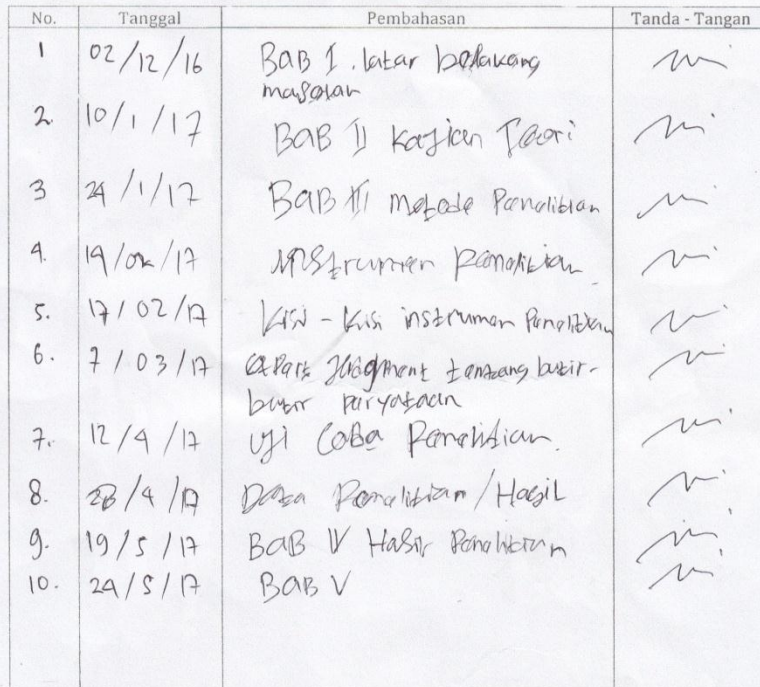 No. Tanggal Pembahasan Tanda - Tangan
1 02/12/16 BAB I. latar belakang
masalah
2. 10/1/17 BAB II Kajian Teori
3 24/1/17 BAB III metode Penelitian
4. 14/02/17 instrumen penelitian
5. 17/02/17 Kisi - Kisi instrumen Penelitian
6. 7/03/17 Judgment tentang butir-
butir
7. 12/4/17 Uji Coba Penelitian.
8. 28/4/17 Data Penelitian / Hasil
9. 19/5/17 BAB IV Hasil Penelitian
10. 24/5/17 BAB V